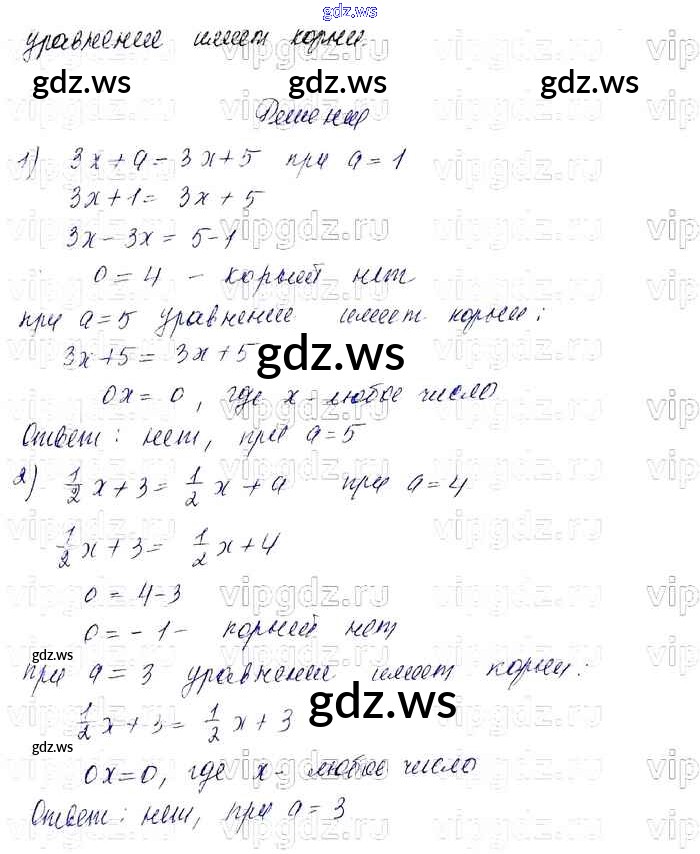 gdz.ws
уравнение имеет корни.
gdz.ws gdz.ws gdz.ws
Решение
1) 3x + a = 3x + 5 при a = 1
3x + 1 = 3x + 5
3x - 3x = 5 - 1
0 = 4 - корней нет
при a = 5 уравнение имеет корни:
3x + 5 = 3x + 5
gdz.ws
0x = 0, где x - любое число
Ответ: нет, при a = 5
2) 1/2 x + 3 = 1/2 x + a при a = 4
1/2 x + 3 = 1/2 x + 4
0 = 4 - 3
0 = - 1 - корней нет
gdz.ws
при a = 3 уравнение имеет корни:
gdz.ws
1/2 x + 3 = 1/2 x + 3
gdz.ws
0x = 0, где x - любое число
Ответ: нет, при a = 3